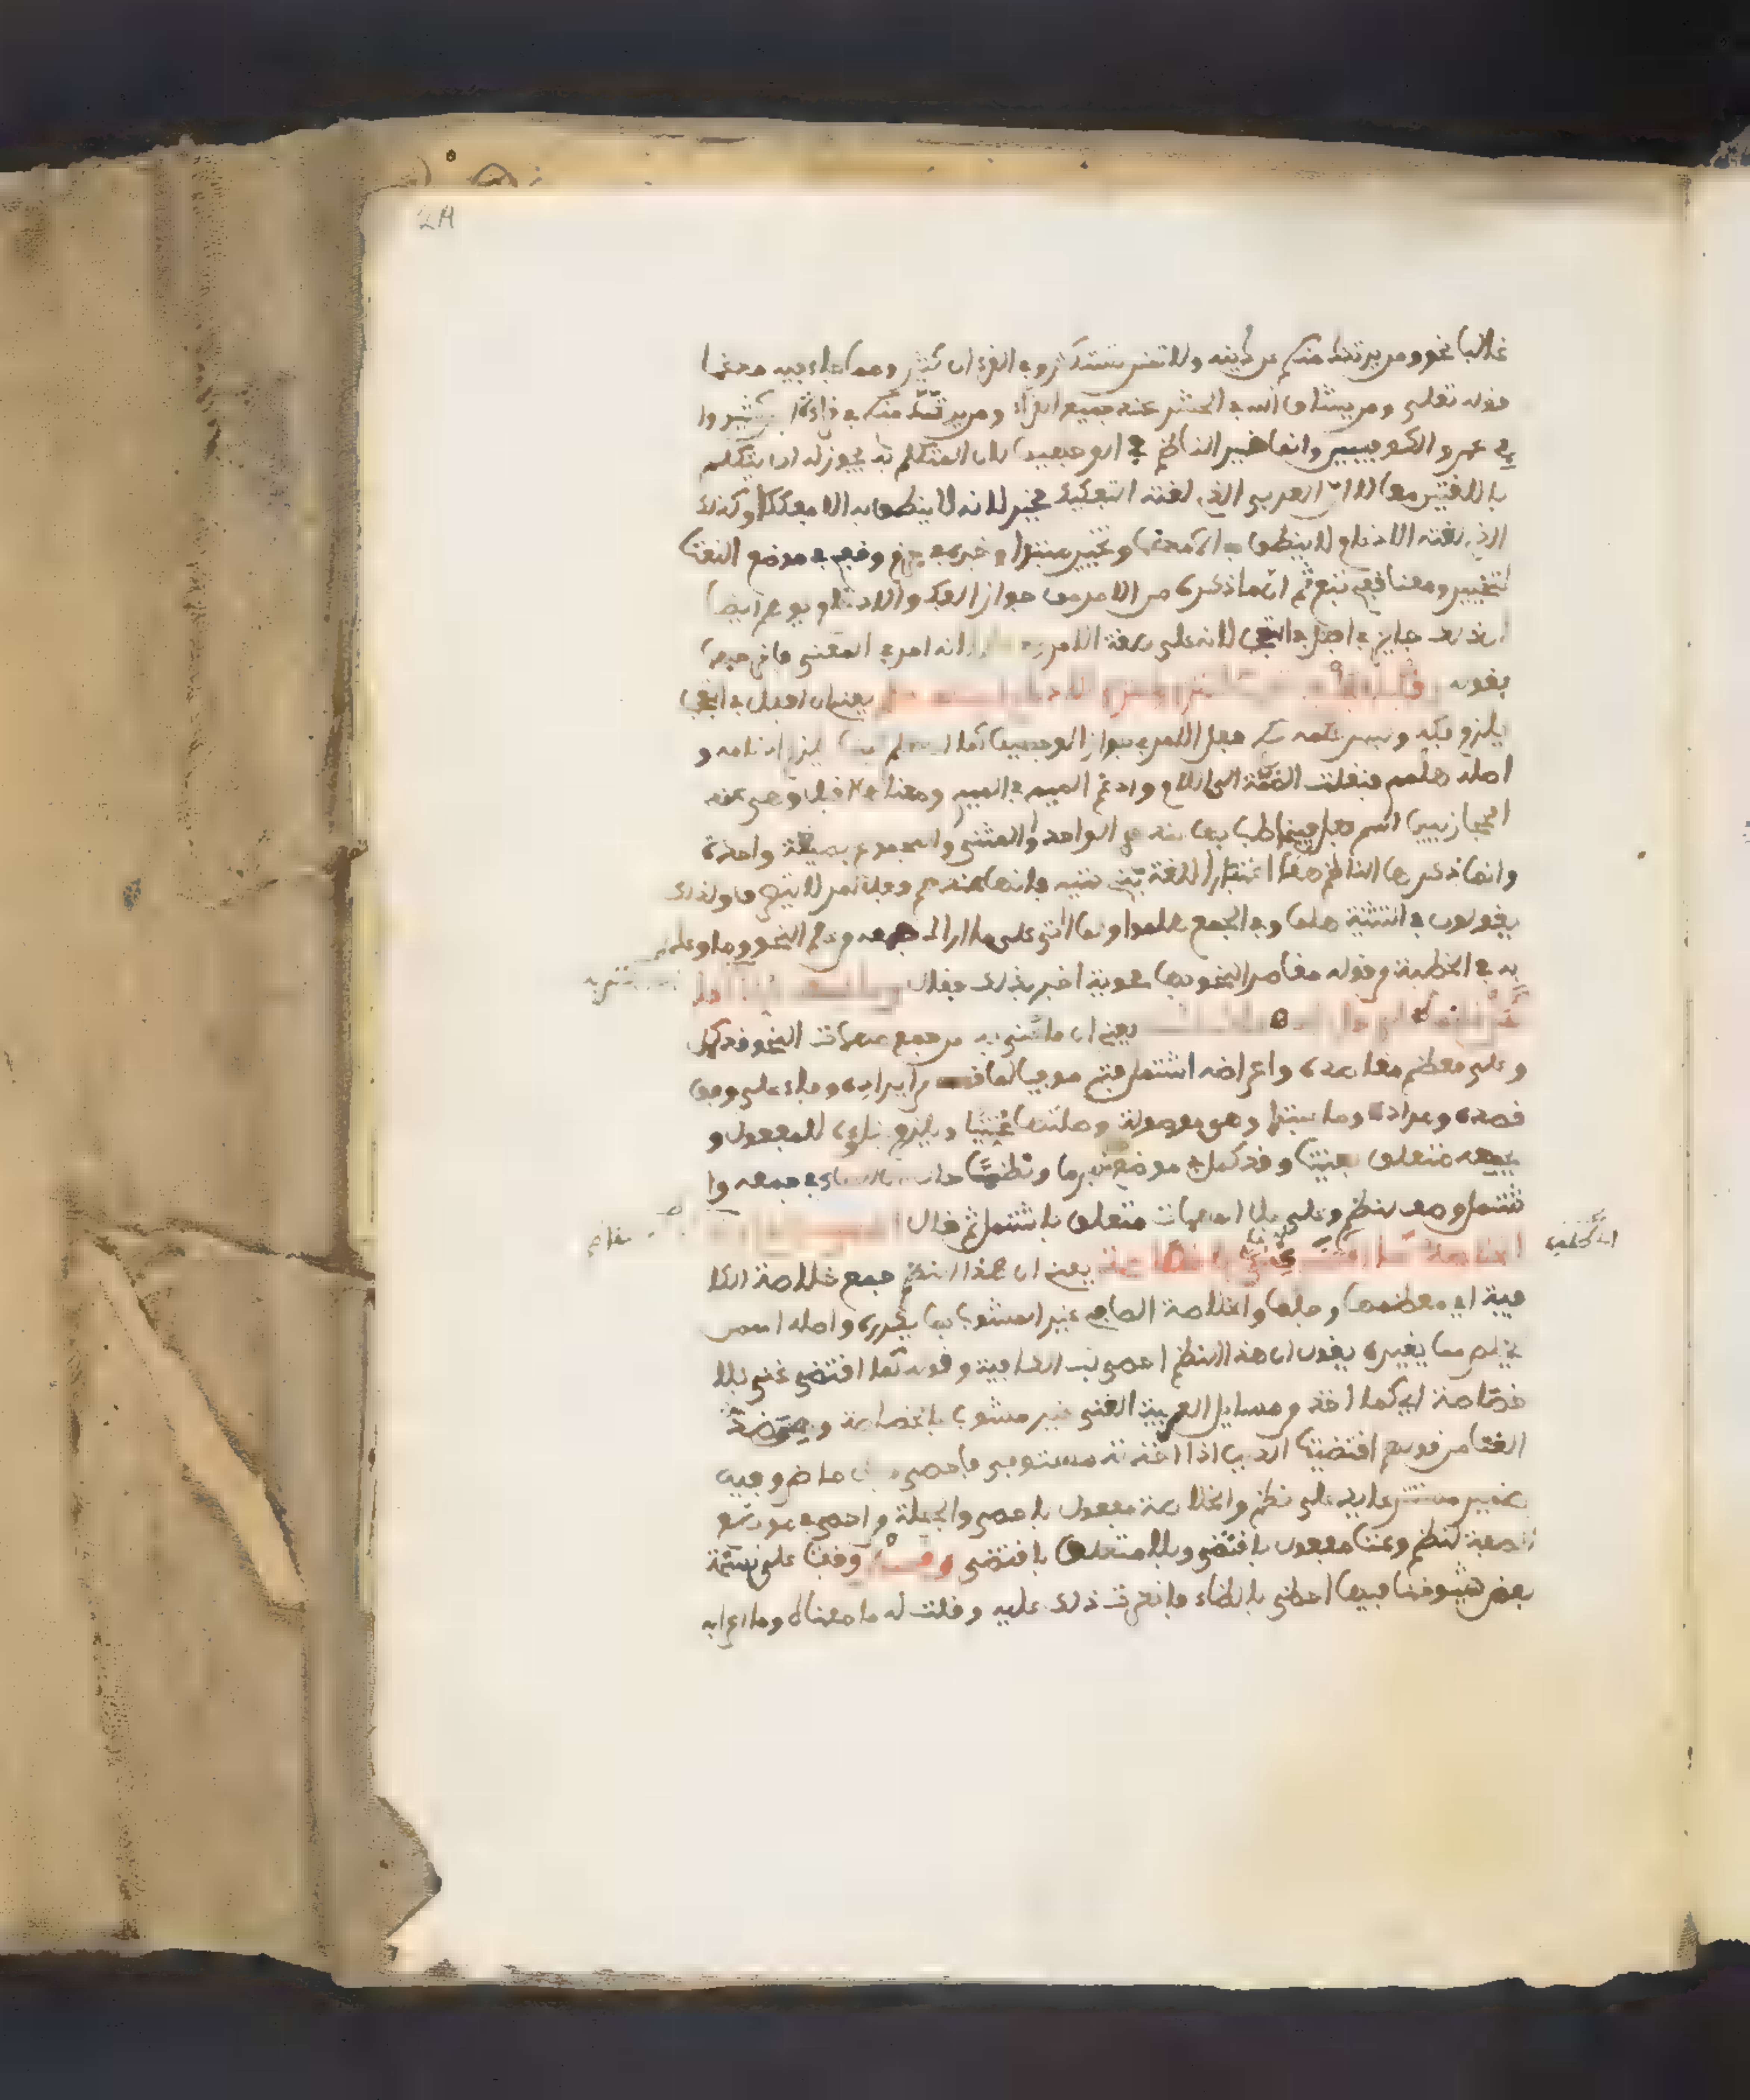 غالبا نحو ومن يرتدد منكم عن دينه ولا تمنن تستكثر وفي القرءان كثير ومما جاء فيه مدغما
قوله تعلى ومن يشاق الله في الحشر عند جميع القراء ومن يرتد منكم في قراءة ابن كثير وا
بي عمرو والكوفيين وانما خير الناظم في الوجهين لان المتكلم به يجوز له ان يتكلم
باللغتين معا لا ان العربي الذي لغته التفكيك مخير لانه لا ينطق به الا مفككا وكذلك
الذي لغته الادغام لا ينطق به الا مدغما وتخيير مبتدا وخبره في جزم وقفي في موضع النعت
لتخيير ومعنا قفي تبع ثم ان ما ذكره من الامرين جواز الفك والادغام يوهم ايضا
ان ذلك جايز في افعل في التعجب لانه على صفة الامر انه امر في المعنى فاخرجه
بقوله وفك افعل في التعجب التزم والتزم الادغام ايضا في هلم يعني ان افعل في التعجب
يلزم فكه وليس حكمه حكم فعل الامر في جواز الوجهين كما ان هلم ايضا يلزم ادغامه و
اصله هلمم فنقلت الضمة الى اللام وادغم الميم في الميم ومعناه اقبل وهي عند
الحجازيين اسم فعل يخاطب بها عندهم الواحد والمثنى والمجموع بصيغة واحدة
وانما ذكرها الناظم هنا اعتبارا للغة بني تميم فانها عندهم فعل امر لا يتصرف ولذلك
يقولون في التثنية هلما وفي الجمع هلموا ولما اتى على ما اراد جمعه من علم النحو وما وعد
به في الخطبة من قوله مقاصد النحو بها محوية اخبر بذلك فقال وما بجمعه عنيت قد كمل
نظما على جل المهمات اشتمل يعني ان ما عني به من جمع مهمات النحو قد كمل
وعلى معظم مقاصده واغراضه اشتمل فتم موفيا لما قصد من ايراده وجاء على وفق
قصده ومراده وما مبتدا وهي موصولة وصلتها عنيت ويلزم بناؤه للمفعول و
بجمعه متعلق بعنيت وقد كمل في موضع خبر ما ونظما حال من الهاء في جمعه وا
شتمل وصف لنظم وعلى جل المهمات متعلق باشتمل ثم قال احصى من الكافية
الخلاصة كما اقتضى غنى بلا خصاصة يعني ان هذا النظم جمع خلاصة الكا
فية اي معظمها وجلها والخلاصة الصافي غير المشوب بما يكدره واصله السمن
يخلص مما يغيره يقول ان هذا النظم احصى لب الكافية وقوله كما اقتضى غنى بلا
خصاصة اي كما اخذ من مسايل العربية الغنى غير مشوب بالخصاصة وهو ضد
الغنا من قولهم اقتضيت الدين اذا اخذته مستوفى فاحصى فعل ماض وفيه
ضمير مستتر عايد على نظم والخلاصة مفعول باحصى والجملة من احصى في موضع
الصفة لنظم وغنا مفعول باقتضى وبلا متعلق باقتضى وقد وقفت على نسخة
بعض شيوخنا فيها احظى بالظاء فانكرت ذلك عليه وقلت له ما معناه وما اعرابه